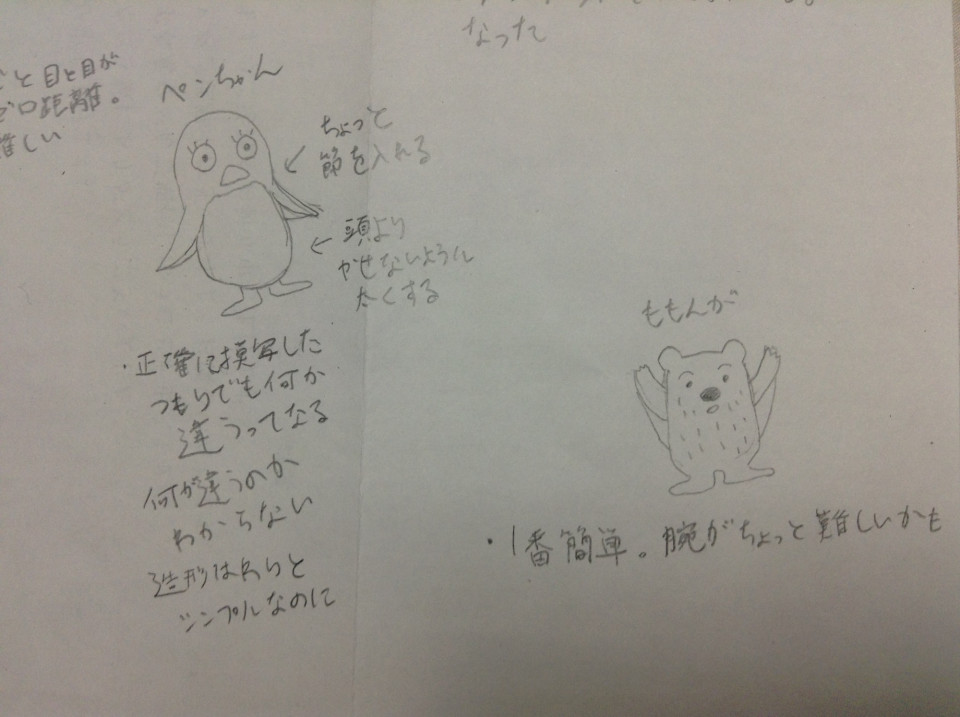 なった
ごと目と目が
ゼロ距離。
難しい
ペンちゃん
ちょっと
節を入れる
頭より
かせないように
太くする
・正確に模写した
つもりでも何か
違うってなる
何が違うのか
わからない
造形はわりと
シンプルなのに
ももんが
・1番簡単。腕がちょっと難しいかも